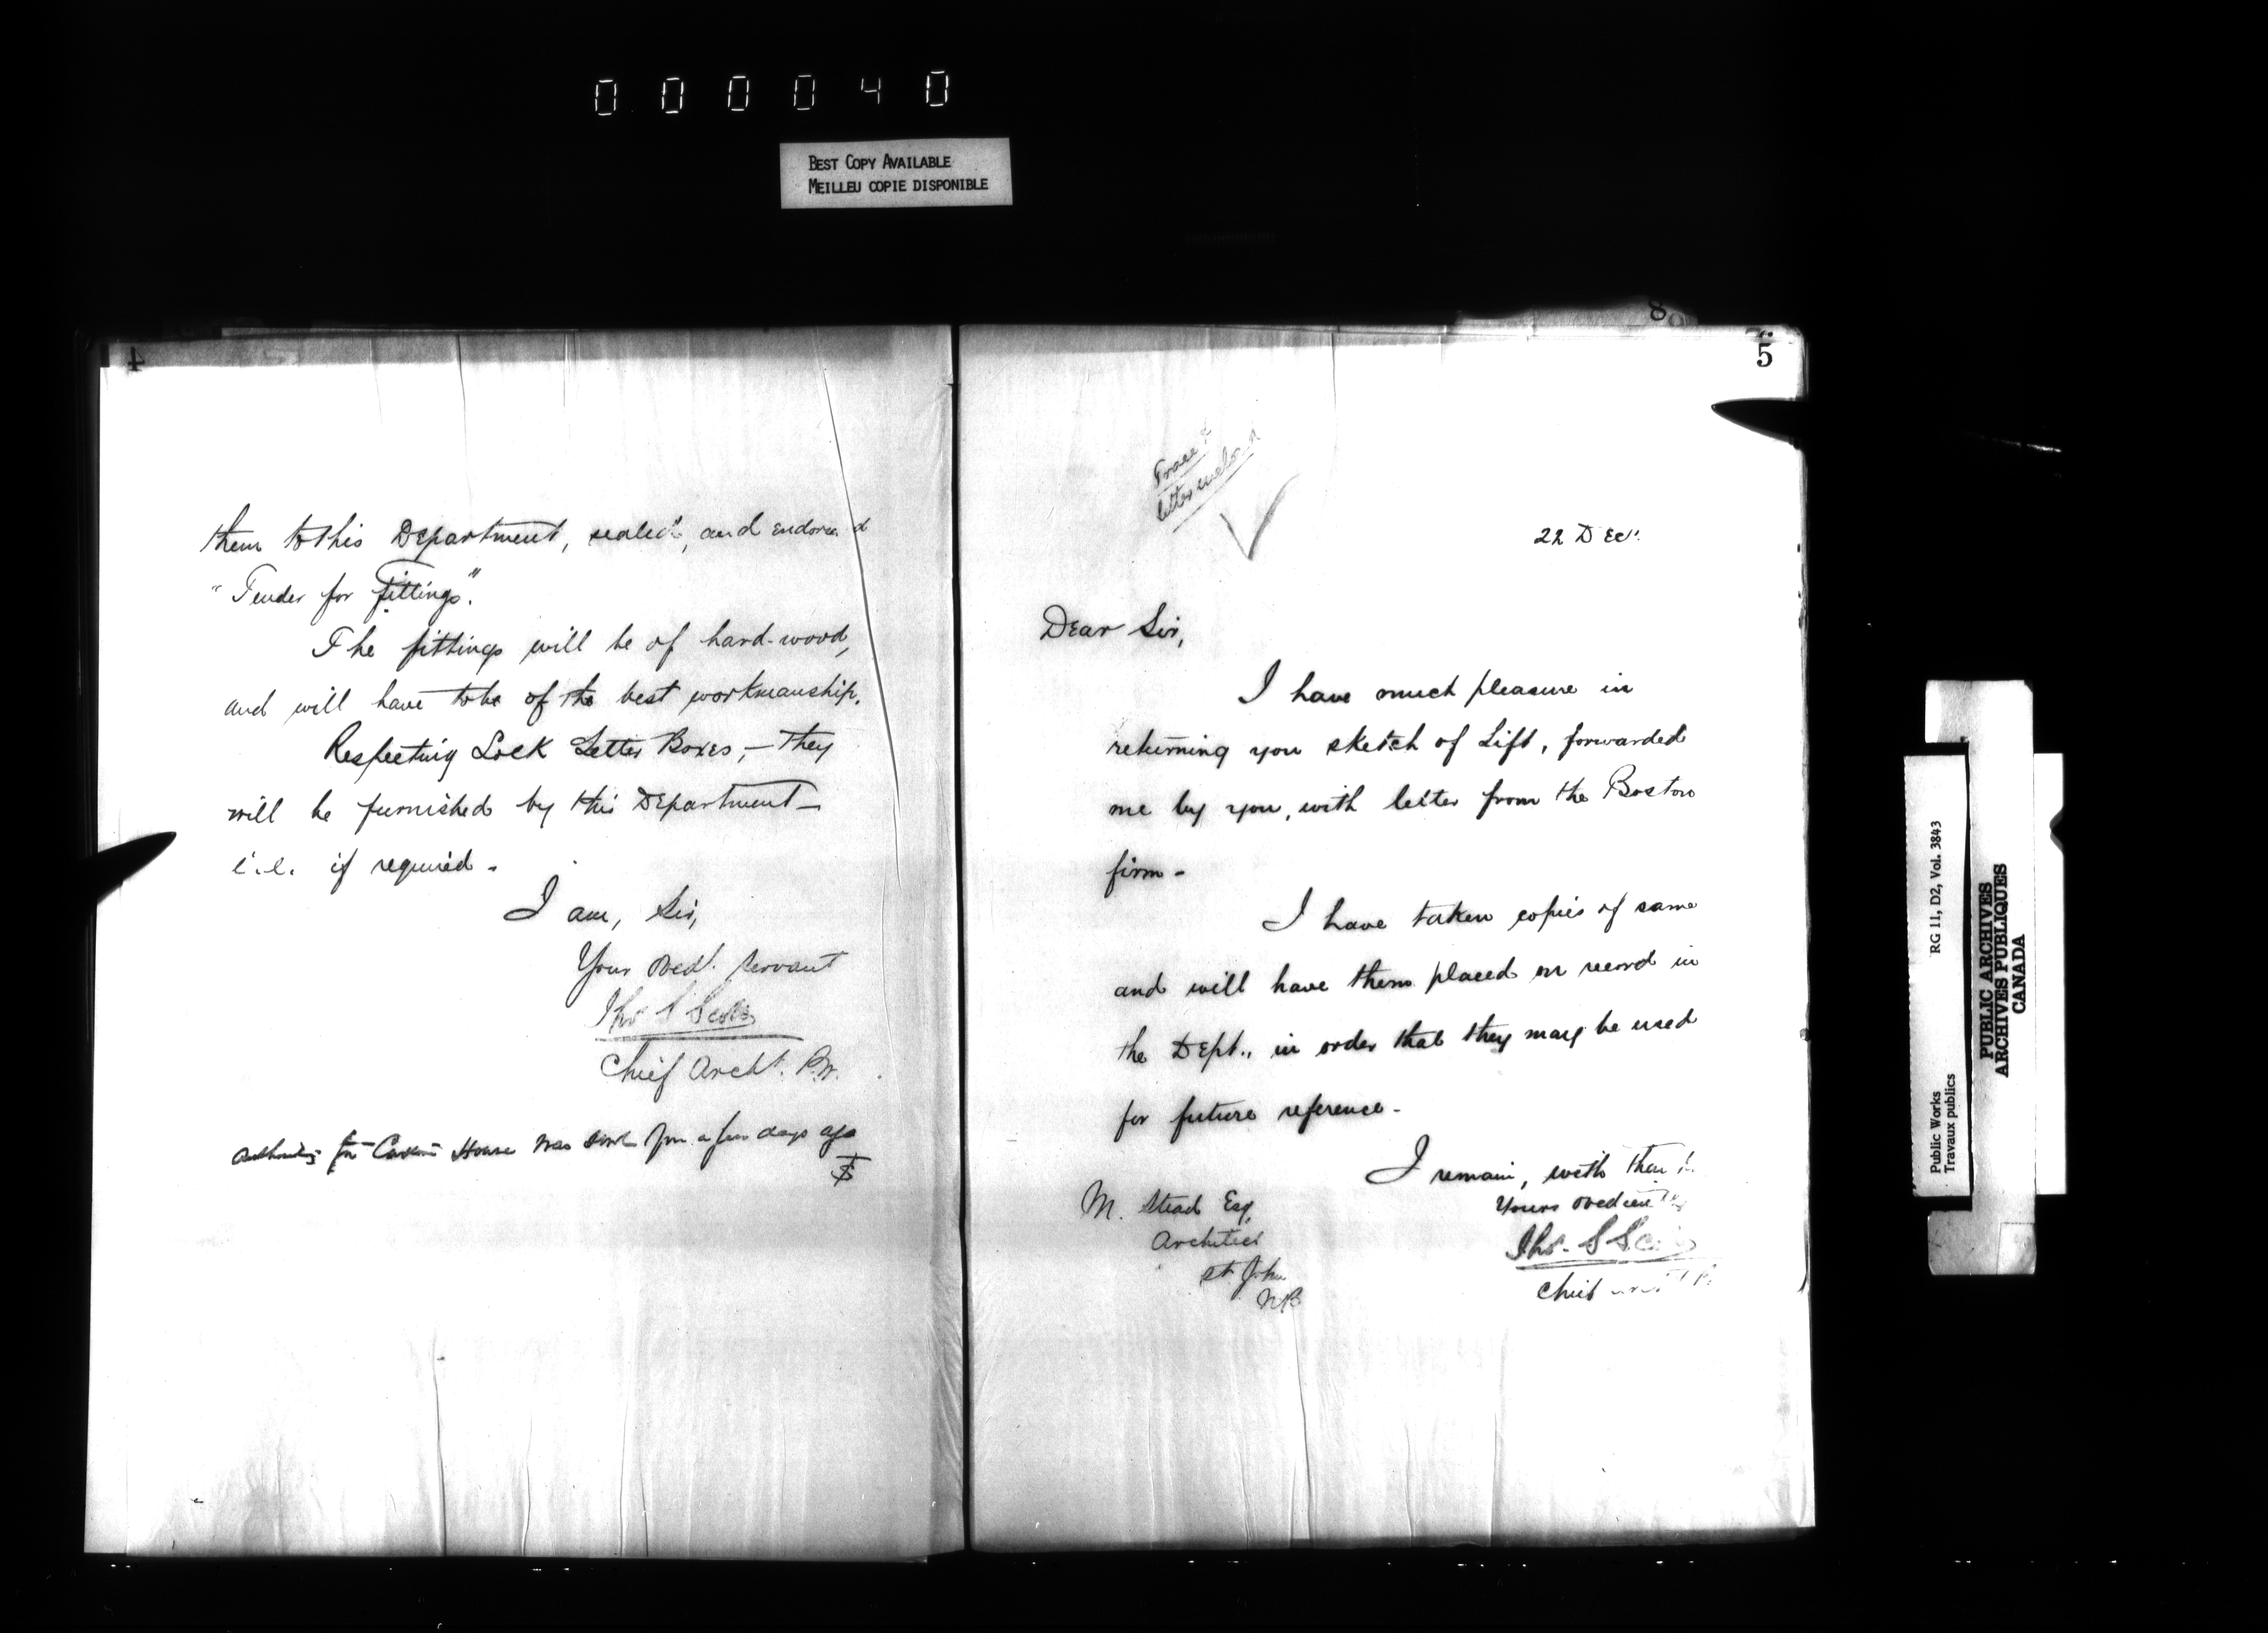 000040
BEST COPY AVAILABLE
MEILLEU COPIE DISPONIBLE
4
them to this Department, sealed, and endorsed
"Tender for Fittings".
The fittings will be of hard-wood,
and will have to be of the best workmanship.
Respecting Lock Letter Boxes,— they
will be furnished by this Department—
i.e. if required -
I am, Sir,
Your Obedt. Servant
Thos S Scott
Chief Archt. P.W.
Authority for Custom House was sent you a few days ago
8
5
Trace &
letter
22 Decr.
Dear Sir,
I have much pleasure in
returning you sketch of Lift, forwarded
me by you, with letter from the Boston
firm -
I have taken copies of same
and will have them placed on record in
the Dept., in order that they may be used
for future reference -
I remain, with
Yours Obediently
Thos. S Scott
Chief
M. Stead Esq.
Architect
St. John
NB
Public Works
Travaux publics
RG 11, D2, Vol. 3843
PUBLIC ARCHIVES
ARCHIVES PUBLIQUES
CANADA